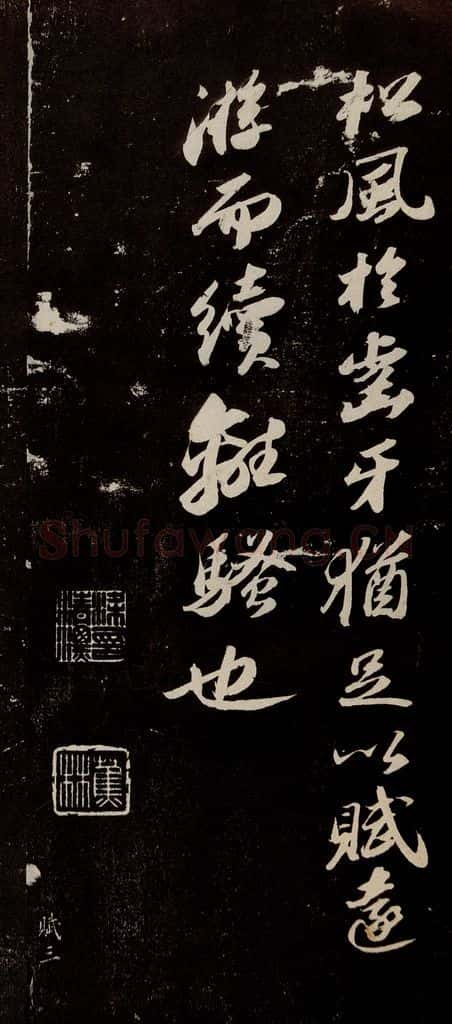 松風於齒牙猶足以賦遠
游而續離騷也
賦三
Shufawang.CN